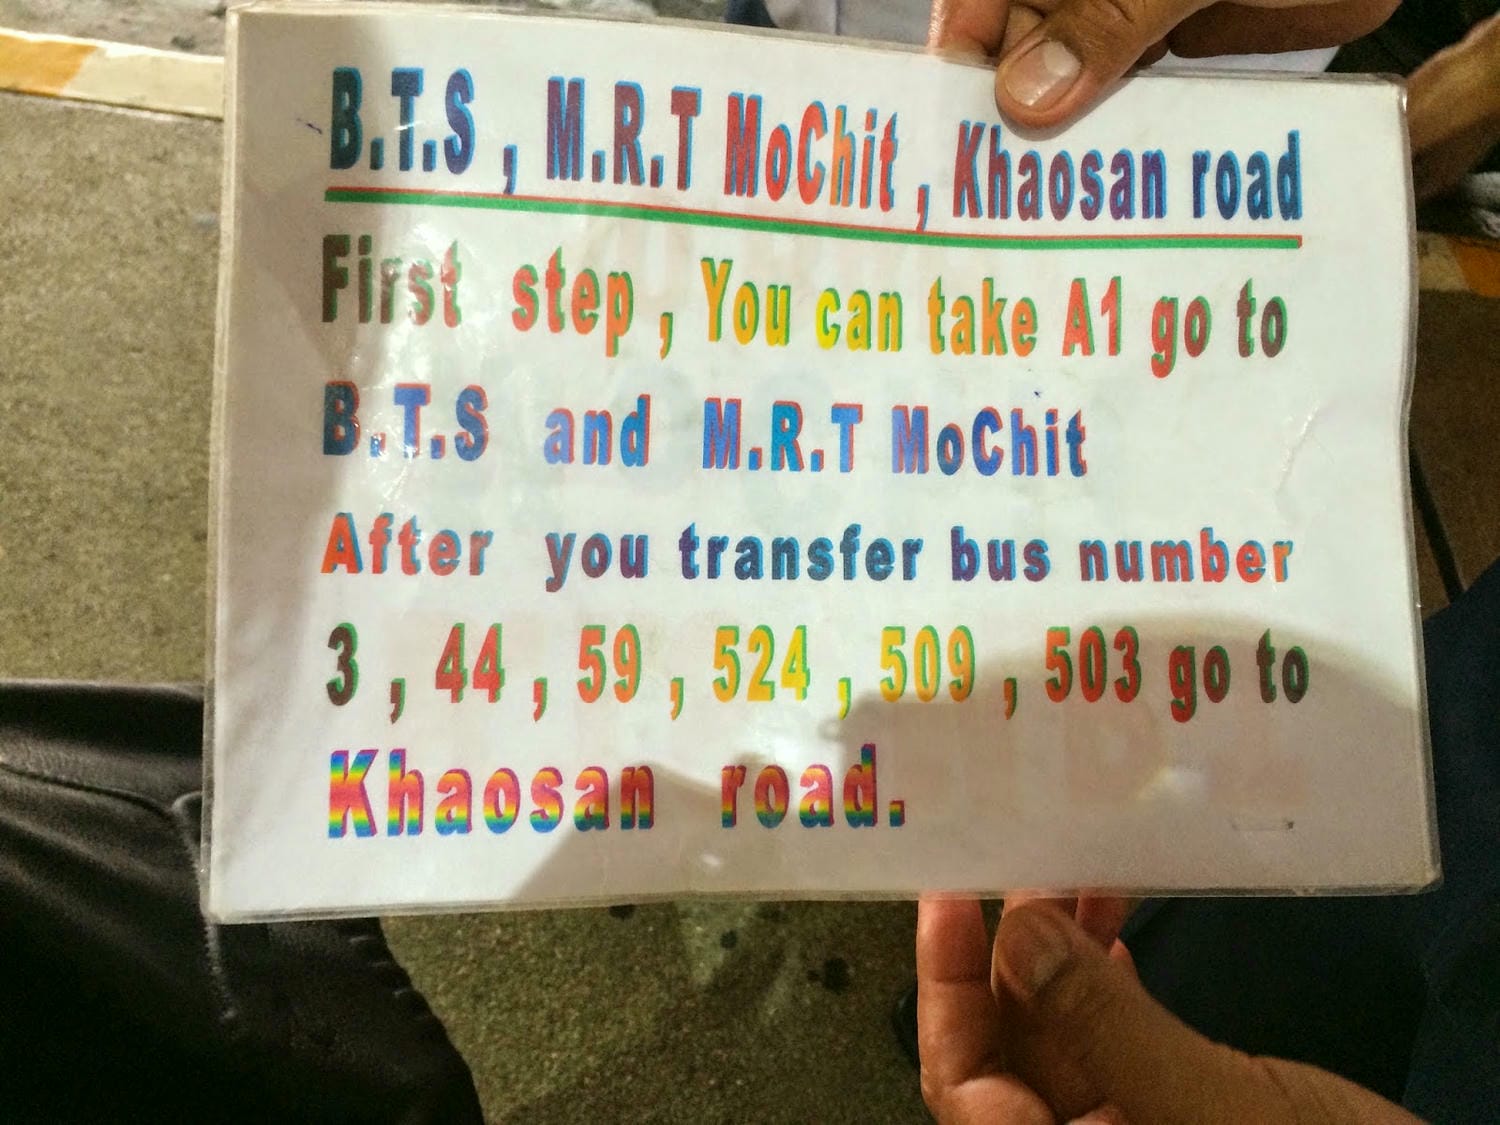 B.T.S , M.R.T MoChit , Khaosan road
First step , You can take A1 go to
B.T.S and M.R.T MoChit
After you transfer bus number
3 , 44 , 59 , 524 , 509 , 503 go to
Khaosan road.